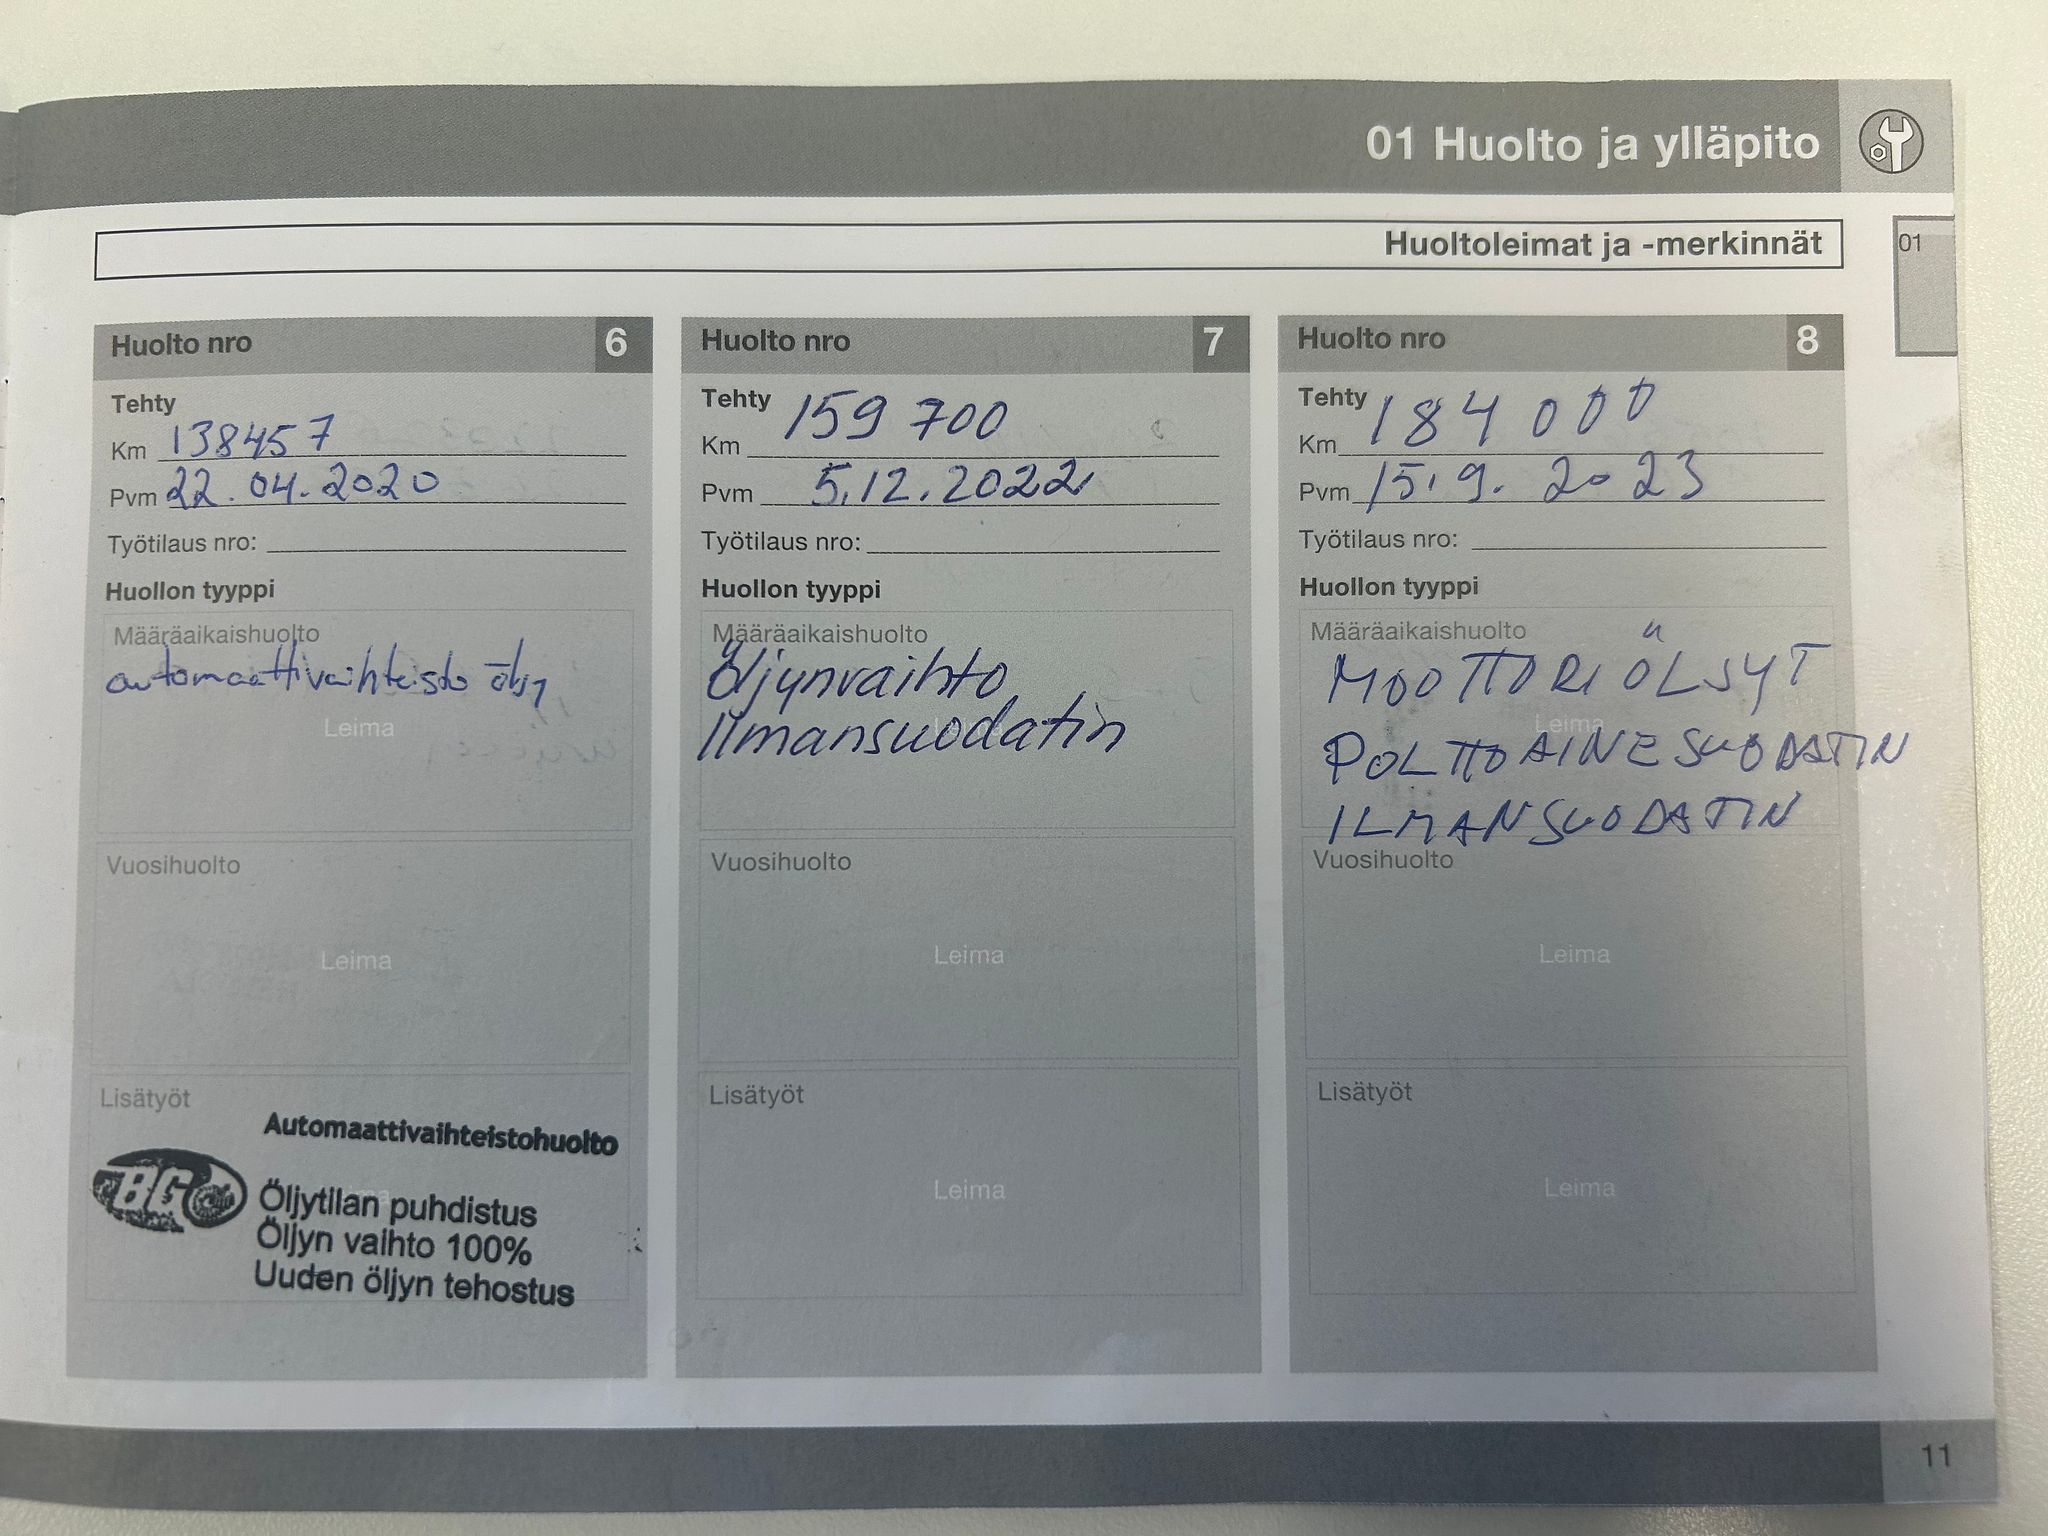 01 Huolto ja ylläpito
01
Huoltoleimat ja -merkinnät
Huolto nro 6
Tehty
Km 138457
Pvm 22.04.2020
Työtilaus nro:
Huollon tyyppi
Määräaikaishuolto
automaattivaihteisto öljy
Leima
Vuosihuolto
Leima
Lisätyöt
Automaattivaihteistohuolto
BG
Öljytilan puhdistus
Öljyn vaihto 100%
Uuden öljyn tehostus
Huolto nro 7
Tehty
Km 159 700
Pvm 5.12.2022
Työtilaus nro:
Huollon tyyppi
Määräaikaishuolto
Öljynvaihto
Ilmansuodatin
Vuosihuolto
Leima
Lisätyöt
Leima
Huolto nro 8
Tehty
Km 184 000
Pvm 15.9.2023
Työtilaus nro:
Huollon tyyppi
Määräaikaishuolto
MOOTTORIÖLJYT
Leima
POLTTOAINESUODATIN
ILMANSUODATIN
Vuosihuolto
Leima
Lisätyöt
Leima
11